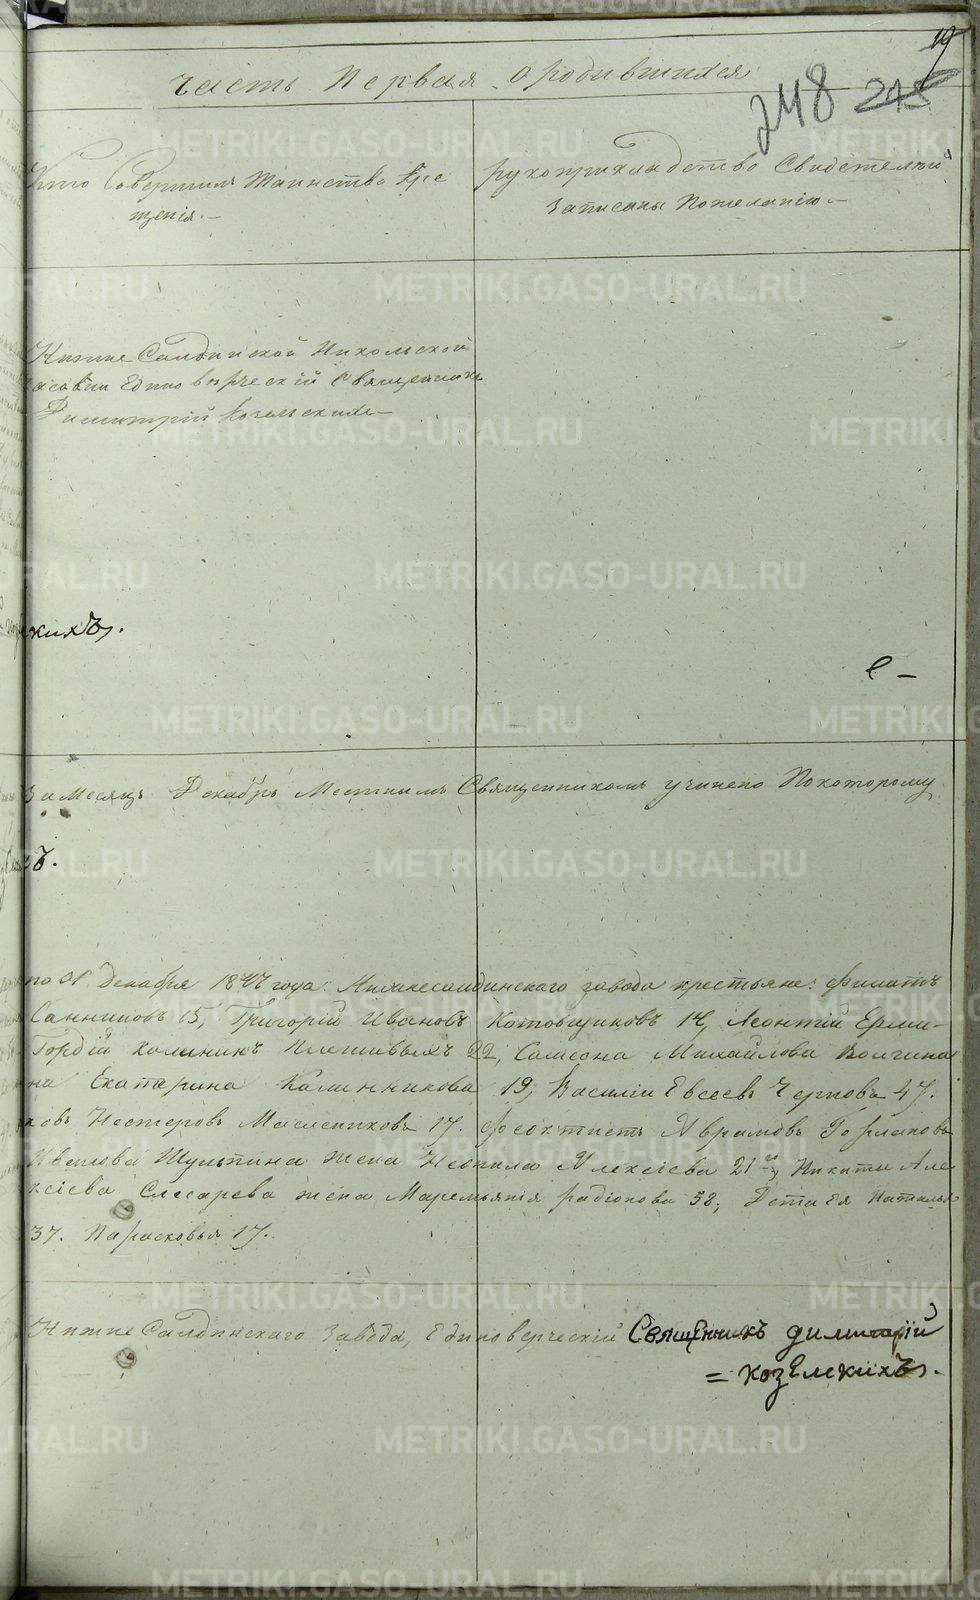 19
Часть Первая о родившихся
248 218
Кто Совершилъ Таинство Кре
щенія.—
рукоприкладство Свидетелей
Записаны Пожеланію.—
Нижне Салдинской Никольской
часовни Единоверческій Священникъ
Димитрій Козельскихъ—
скихъ.
За Месяцъ Декабрь Местнымъ Священникомъ учинено Покоторому
по 31 Декабря года: Нижнесалдинскаго завода крестьяне: Филатъ
Санниковъ 15, Григорій Ивановъ Котовщиковъ 14, Леонтій Ерми-
Гордій Калининъ Плешивыхъ 22, Самсона Михайлова Волгина
на Екатерина Калинникова 19, Василіи Евсеевъ Черновъ 47.
ковъ Нестеровъ Масленниковъ 17. Феоктистъ Аврамовъ Горлановъ
Ивашова Шульпина жена Неонила Алексіева 21, Никиты Але-
ксіева Слесарева жена Маремьянія радіонова 58,
37. Парасковья 17.
Нижне Салдинскаго Завода, Единоверческій Священникъ димитрій
= козЕлскихъ.
METRIKI.GASO-URAL.RU